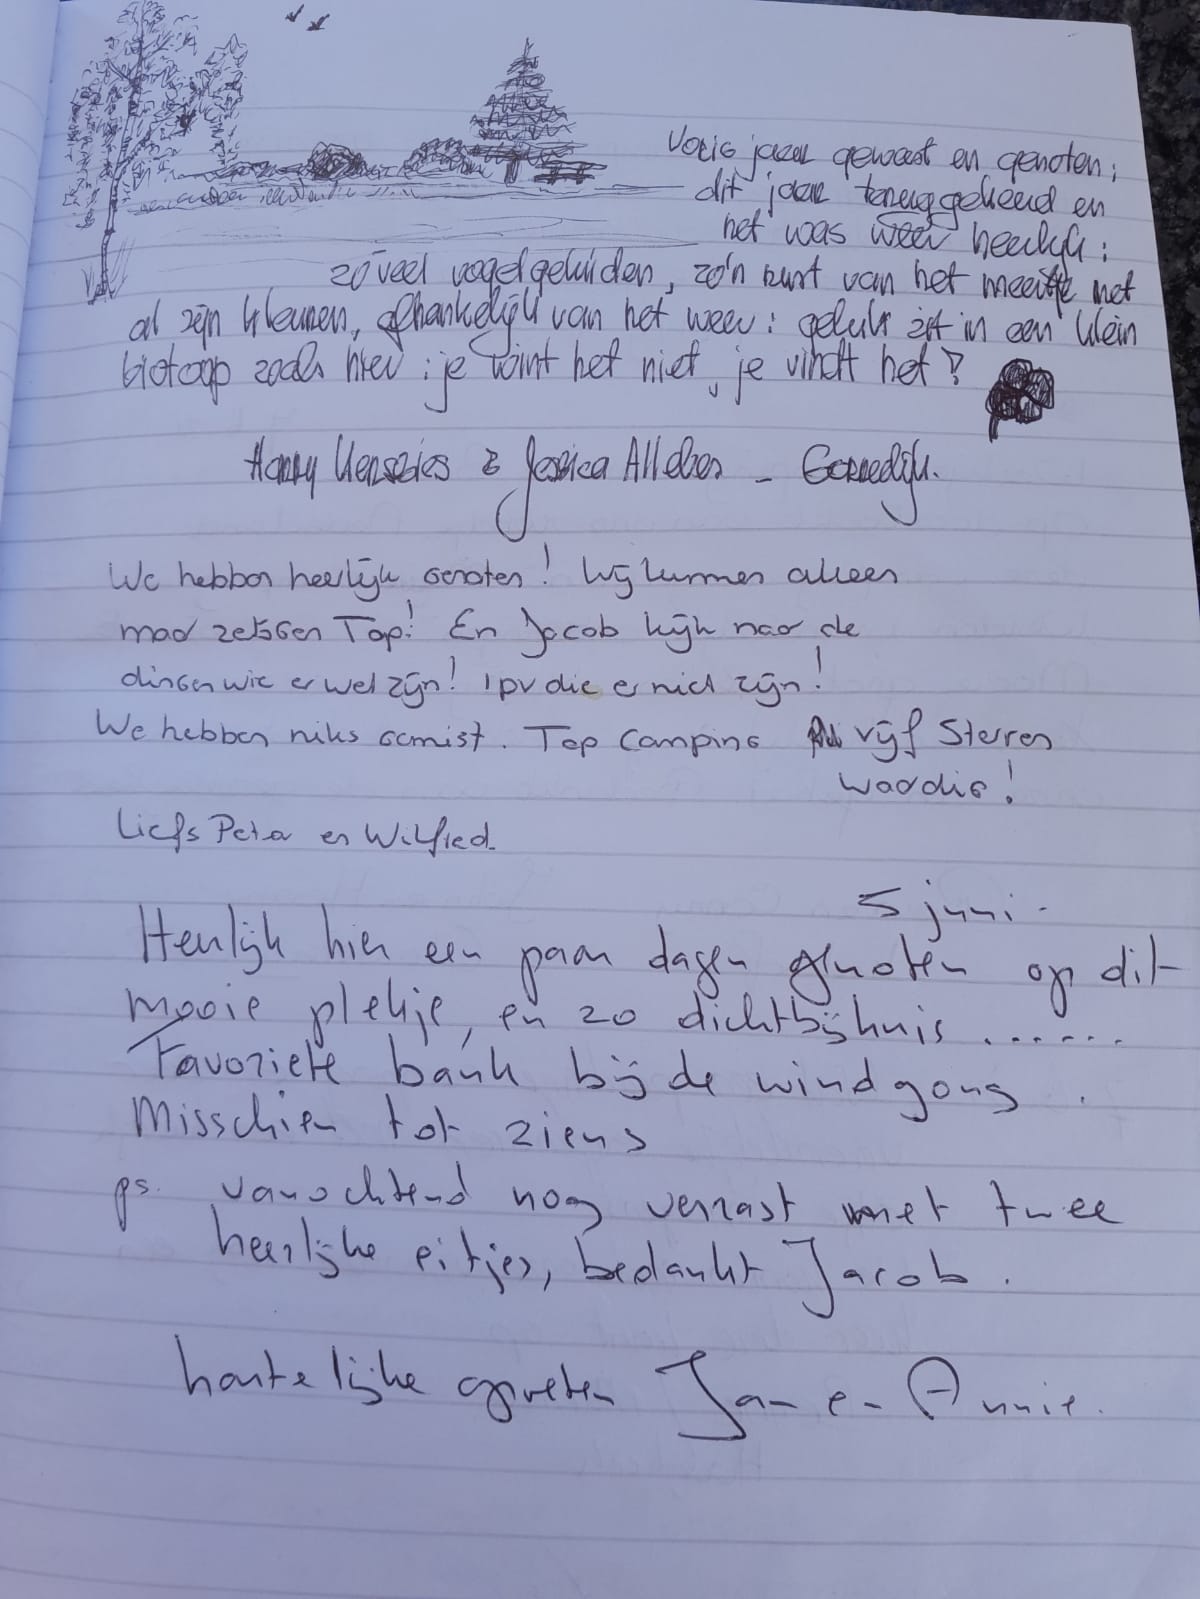 Vorig jaar geweest en genoten;
dit jaar teruggekeerd en
het was weer heerlijk:
zoveel vogelgeluiden, zo'n rust van het meertje met
al zijn kleuren, afhankelijk van het weer: geluk zit in een klein
biotoop zoals hier: je wint het niet, je vindt het?
Harry & Jessica - Gorredijk.
We hebben heerlijk genoten! Wij kunnen alleen
maar zeggen Top! En Jacob kijk naar de
dingen wie er wel zijn! ipv die er niet zijn!
We hebben niks gemist. Top Camping vijf Sterren
waardig!
Liefs Petra en Wilfried.
5 juni -
Heerlijk hier een paar dagen genoten op dit
mooie plekje, en zo dichtbijhuis .......
Favoriete bank bij de windgong.
Misschien tot ziens
ps. vanochtend nog verrast met twee
heerlijke eitjes, bedankt Jacob.
hartelijke groeten Jan en Annie.